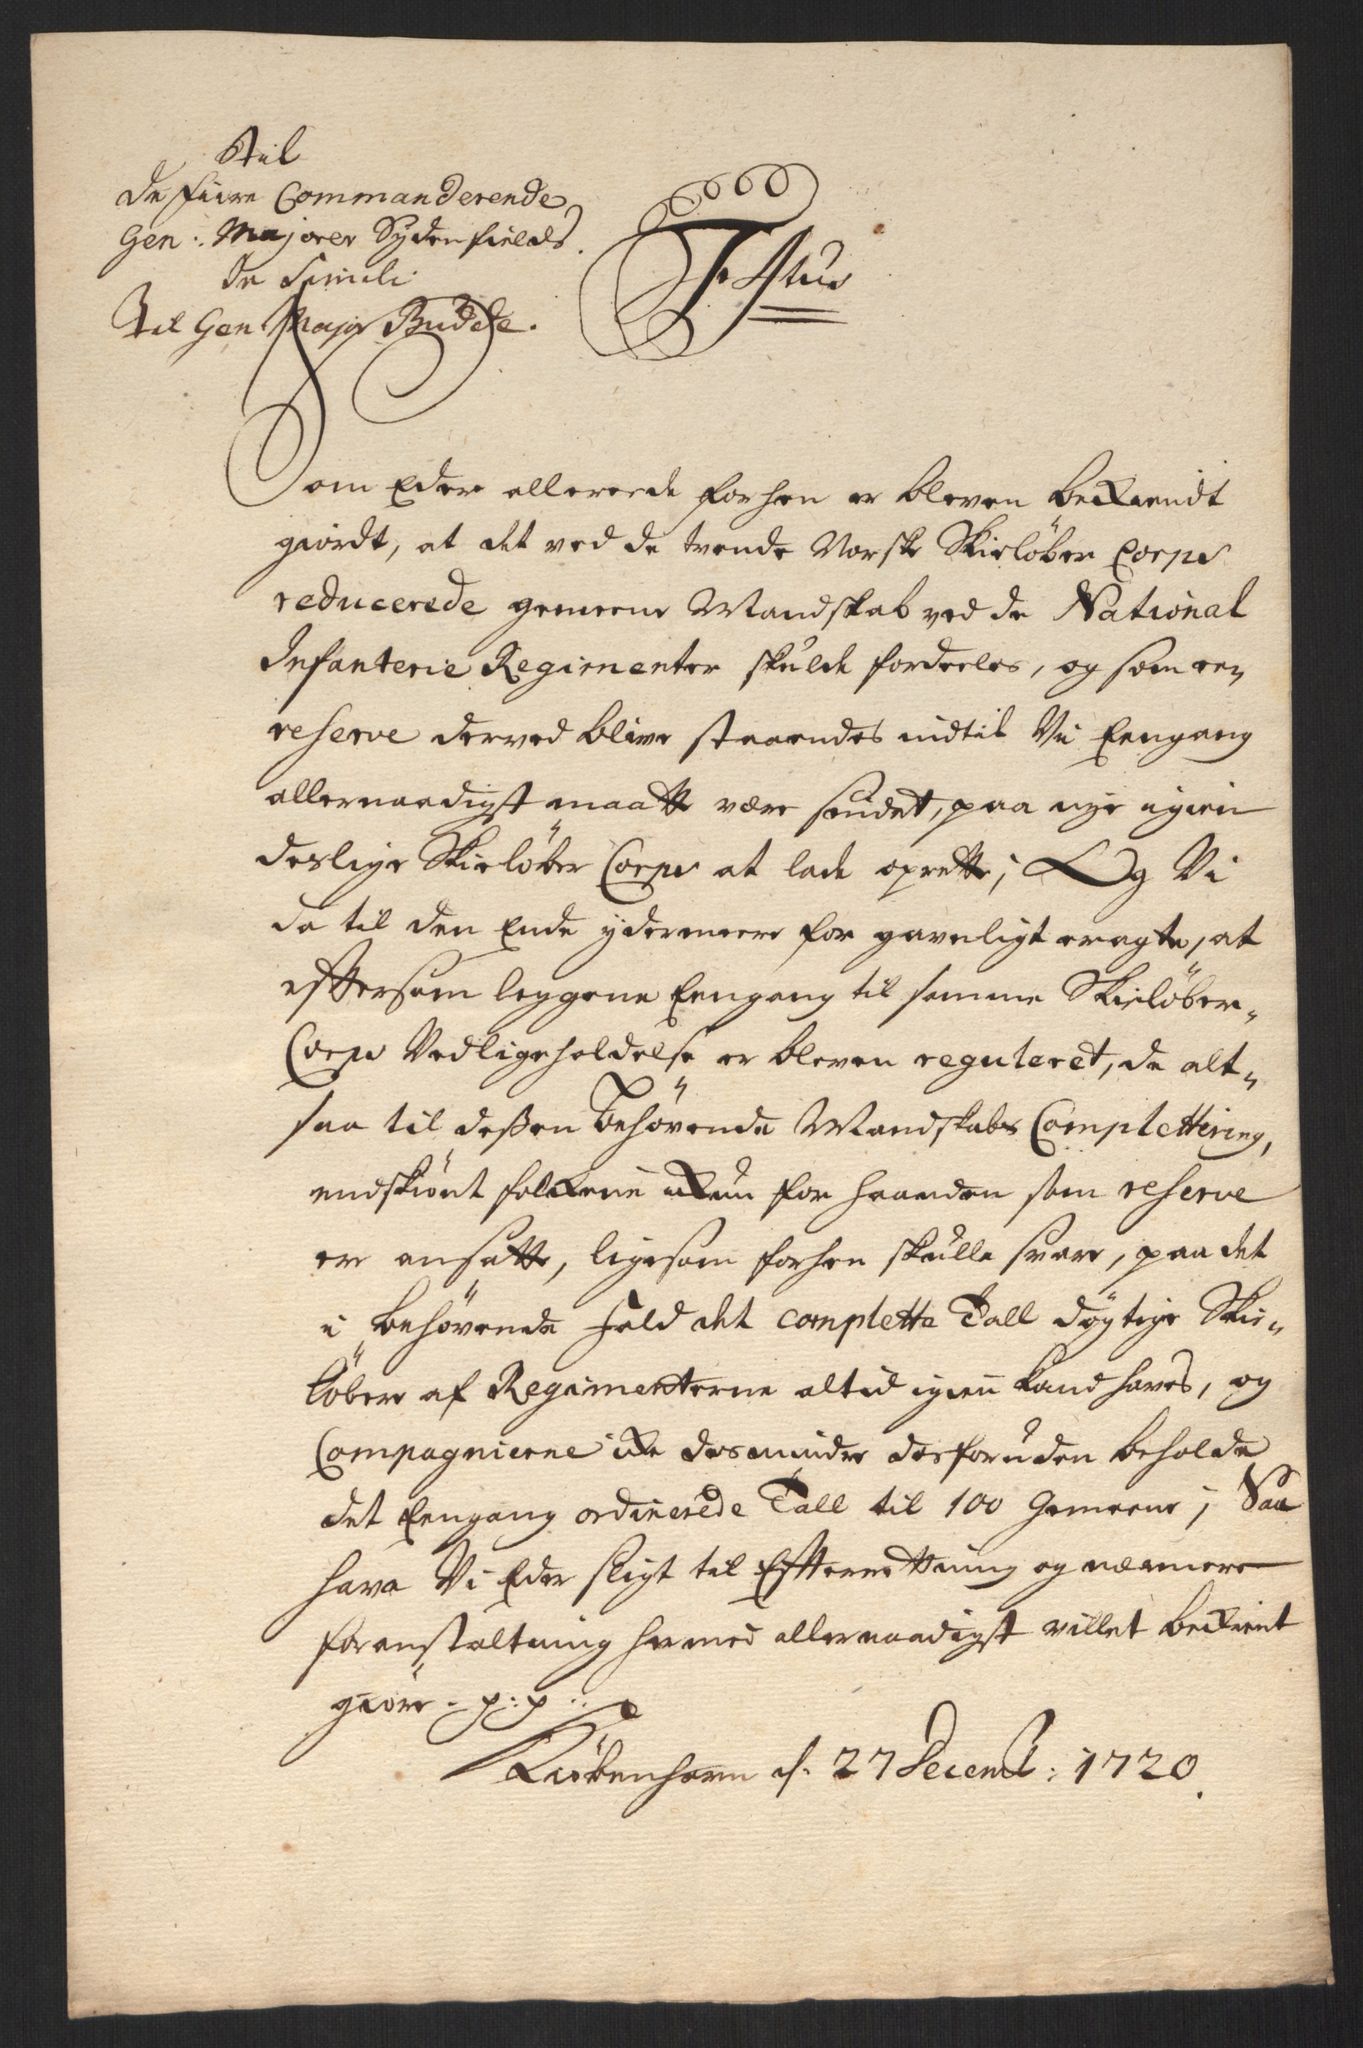 Til
De fiire Commanderende
Gen: Majorer Sydenfields.
De Simili
Til Gen Major Budde.
Som Eder allereede forhen er bleven bekiendt
giordt, at det ved de trende Norske Skieløber Corps
reducerede gemeene Mandskab ved de National
Infanterie Regimenter skulde fordeeles, og som een
reserve derved blive staaendes indtil Vi Eengang
allernaadigst maatte være sindet, paa nye igien
deslige Skieløber Corps at lade oprette; Og Vi
da til den Ende ydermeere for gavnligt eragte, at
efftersom leggene Eengang til samme Skieløber-
Corps Vedligeholdelse er bleven reguleret, de alt-
saa til deßen behøvende Mandskabs Complettering,
endskiönt folkene ikkun for haanden som reserve
er ansatte, ligesom forhen skulle svare, paa det
i behøvende Fald det complette Tall dygtige Skie-
løbere af Regimenterne altid igien kand haves, og
Compagnierne ikke desmindre desforuden beholde
det Eengang ordinerede Tall til 100 Gemeene; Saa
have Vi Eder sligt til Effterretning og nærmere
foranstaltning hermed allernaadigst villet bekient
giøre. p: p:
Kiøbenhavn d. 27 Decemb: 1720.